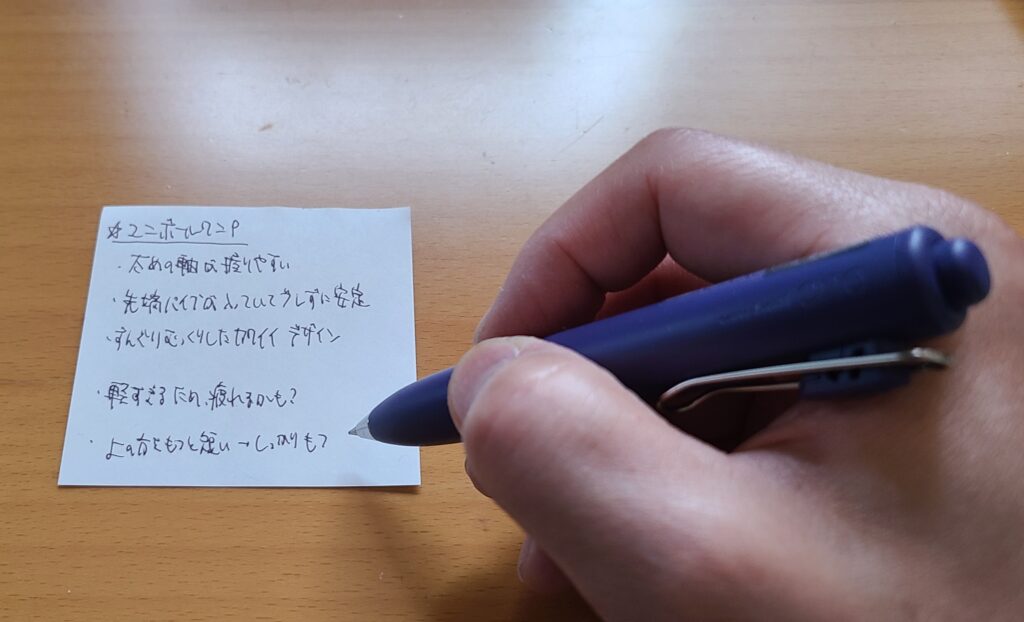 ☆ユニボールワンP
・太めの軸は握りやすい
・先端パイプが 少しずに安定
・ずんぐりむっくりしたカワイイ デザイン
・軽すぎるため、疲れるかも?
・上の方をもつと 短い→しっかりもつ